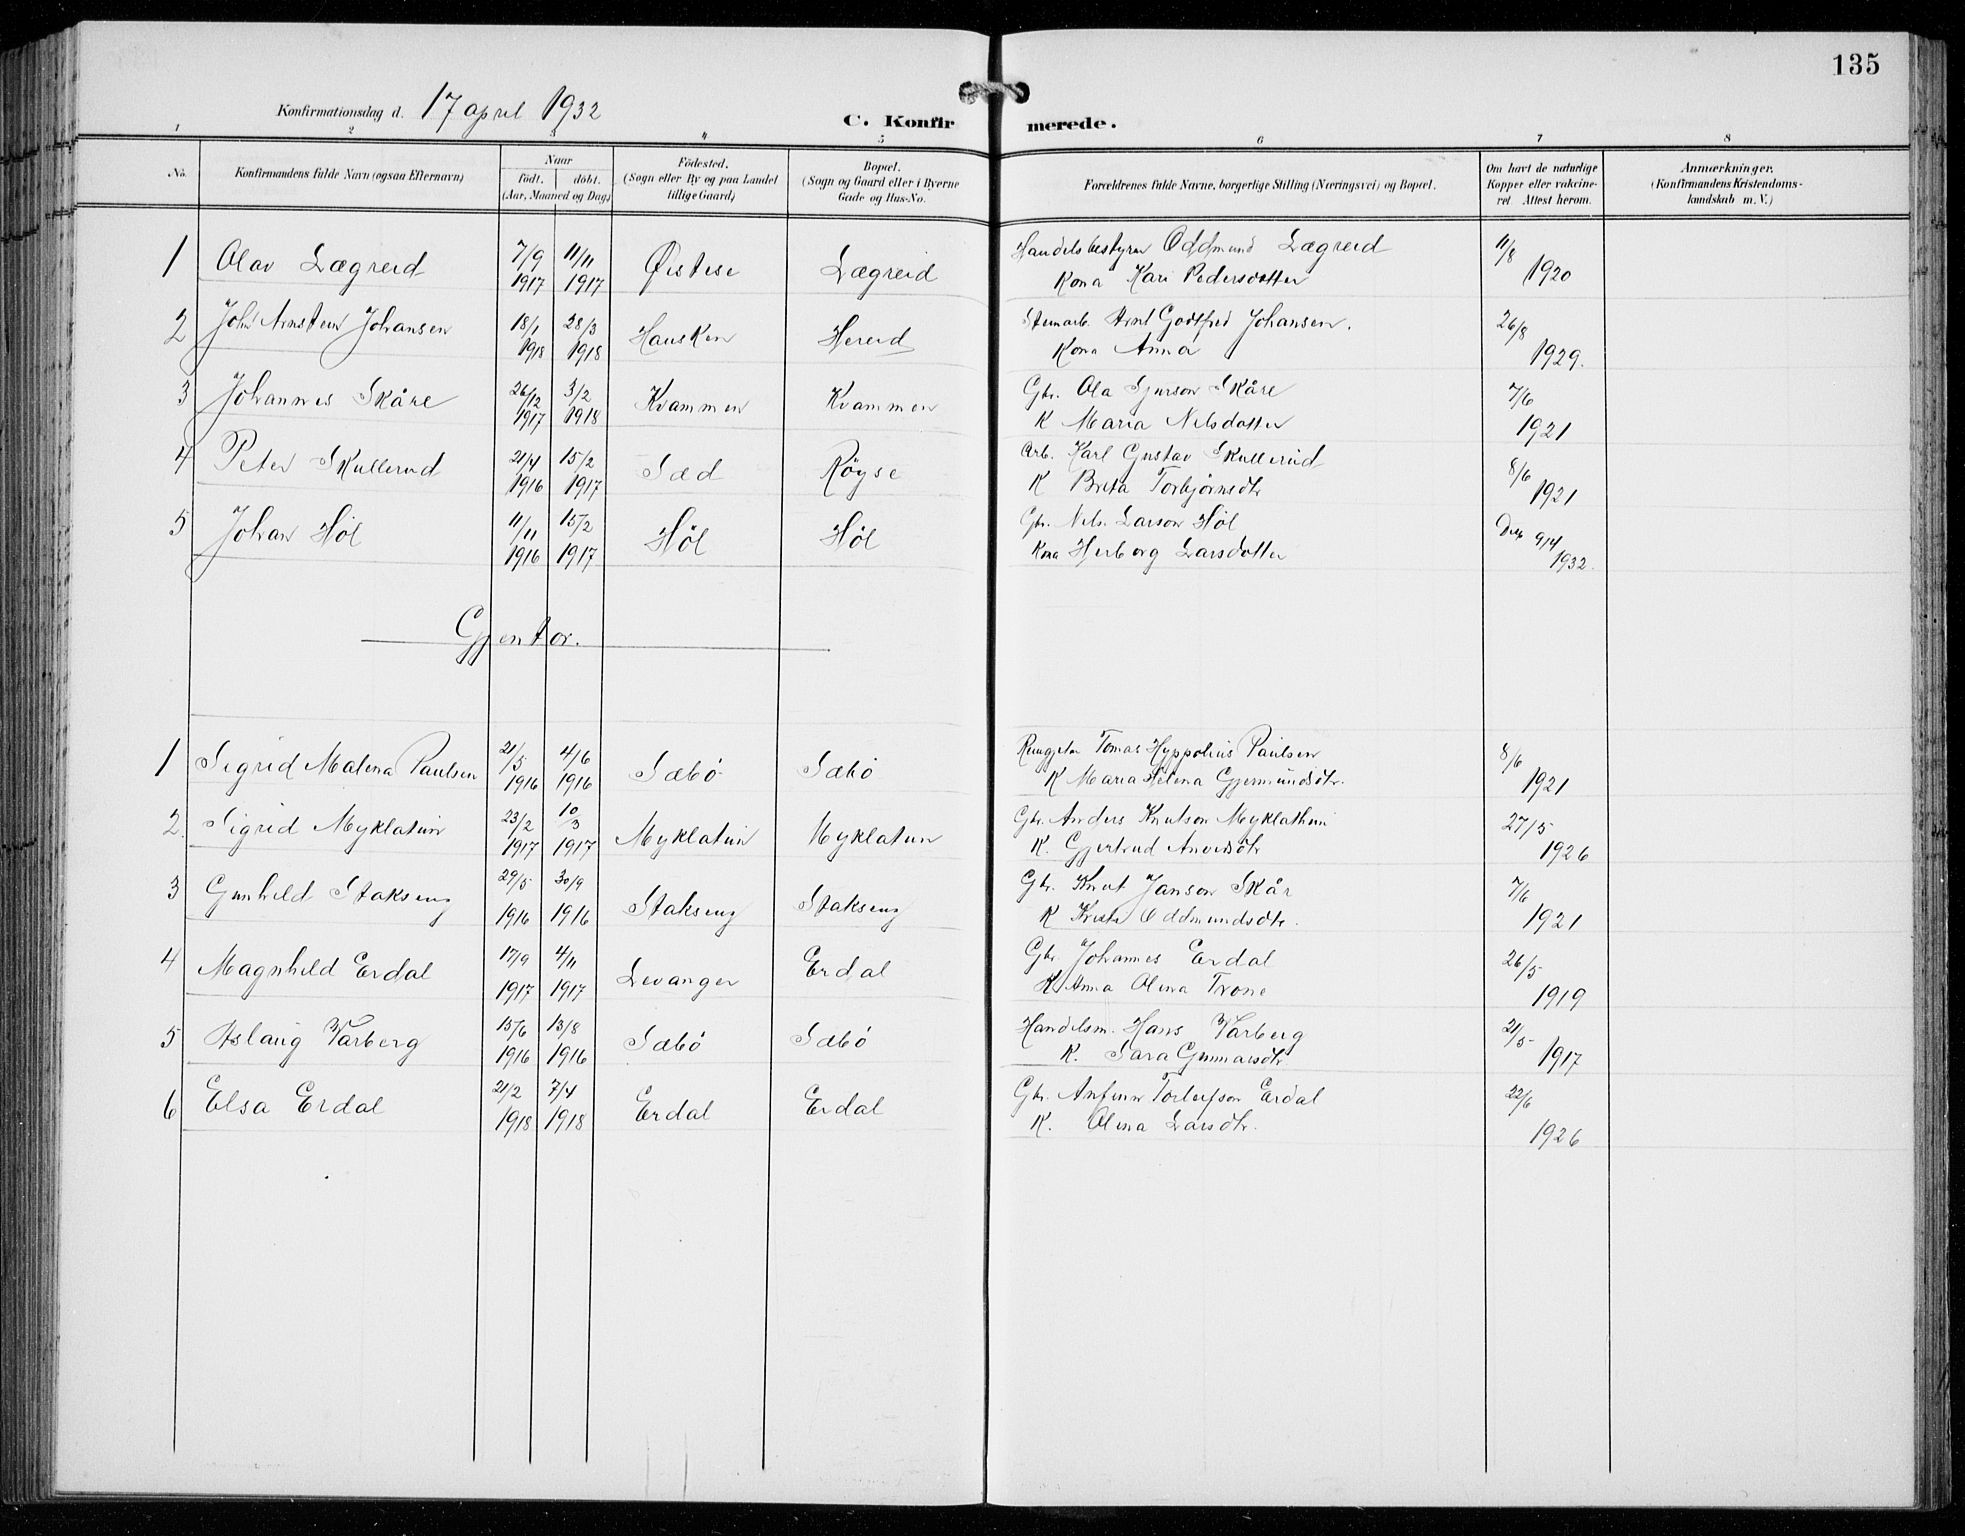 135
Konfirmationsdag d. 17 april 1932
C. Konfirmerede.
1 2 3 4 5 6 7 8
No.
Konfirmandens fulde Navn (ogsaa Efternavn)
Naar
födt. döbt.
(Aar, Maaned og Dag)
Födested.
(Sogn eller By og paa Landet
tillige Gaard)
Bopæl.
(Sogn og Gaard eller i Byerne
Gade og Hus-No.
Forældrenes fulde Navne, borgerlige Stilling (Næringsvei) og Bopæl.
Om havt de naturlige
Kopper eller vakcine-
ret. Attest herom.
Anmærkninger.
(Konfirmandens Kristendoms-
kundskab m. V.)
1 Olav Lægreid 7/9 1917 11/11 1917 Øistese Lægreid
Handelsbestyrer Oddmund Lægreid 11/8
Kona Kari Pedersdotter 1920
2 John Arnstein Johansen 18/1 1918 28/3 1918 Hausken Hereid
Steinarb. Arnt Godtfred Johansen. 26/8
Kona Anna 1929.
3 Johannes Skåre 26/12 1917 3/2 1918 Kvammen Kvammen
Gbr. Ola Sjurson Skåre 7/6
K Maria Nilsdotter 1921
4 Peter Skullerud 21/4 1916 15/2 1917 Sæd Röyse
Arb. Karl Gustav Skullerud 8/6
K Brita Torbjørnsdtr 1921
5 Johan Høl 11/11 1916 15/2 1917 Høl Høl
Gbr. Nils Larson Høl 9/4
Kona Herborg Larsdotter 1932.
Gjentor.
1 Sigrid Malena Paulsen 21/5 1916 4/6 1916 Sæbö Sæbö
Tomas Hyppolius Paulsen 8/6
K Maria Helena Gjermundsdtr. 1921
2. Sigrid Myklatun 23/2 1917 10/3 1917 Myklatun Myklatun
Gbr. Anders Knutson Myklathun 27/5
K. Gjertrud Anversdtr 1926
3 Gunhild Stokseng 29/5 1916 30/9 1916 Stokseng Stokseng
Gbr. Knut Janson Skår 7/6
K Krista Oddmundsdtr. 1921
4 Magnhild Erdal 17/9 1917 4/11 1917 Levanger Erdal
Gbr. Johannes Erdal 26/5
K Anna Olina Trone 1919
5 Aslaug Varberg 15/6 1916 13/8 1916 Sæbö Sæbö
Handelsm. Hans Varberg 21/5
K. Sara Gunnarsdtr 1917
6 Elsa Erdal 21/2 1918 7/4 1918 Erdal Erdal
Gbr. Anfinn Torleifson Erdal 22/6
K. Olina Larsdtr. 1926